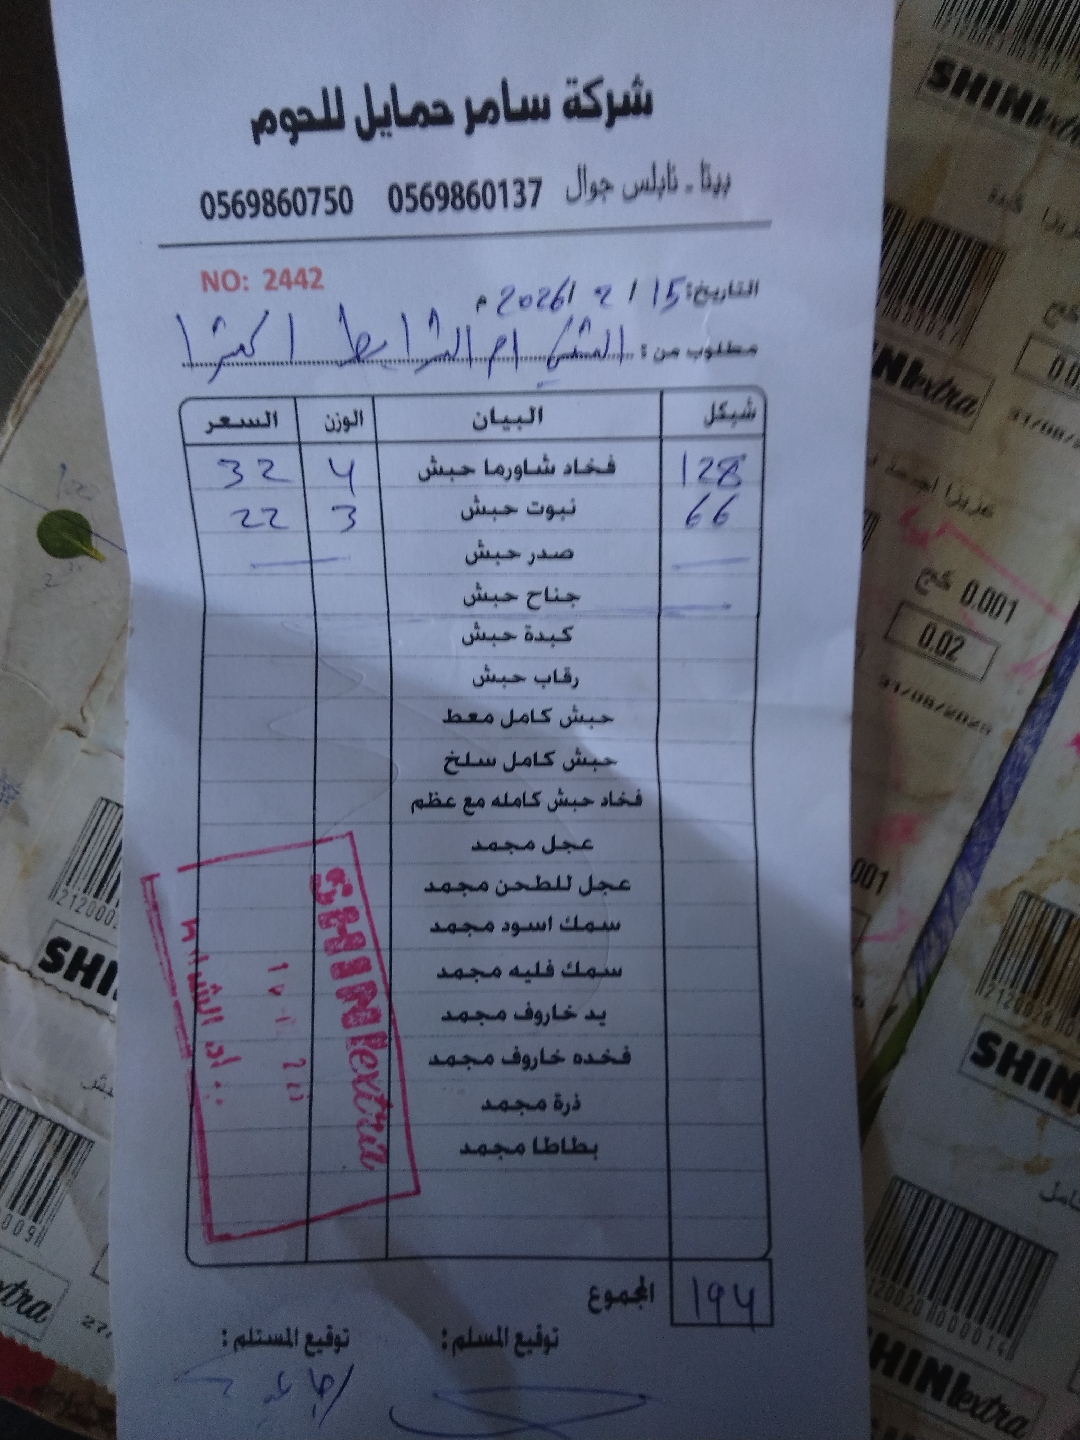 شركة سامر حمايل للحوم
بيتا - نابلس جوال 0569860137 0569860750
NO: 2442
التاريخ: 15 / 2 / 2026 م
مطلوب من : ام الشرايط اكسترا
شيكل البيان الوزن السعر
128 فخاد شاورما حبش 4 32
66 نبوت حبش 3 22
صدر حبش
جناح حبش
كبدة حبش
رقاب حبش
حبش كامل معط
حبش كامل سلخ
فخاد حبش كامله مع عظم
عجل مجمد
عجل للطحن مجمد
سمك اسود مجمد
سمك فليه مجمد
يد خاروف مجمد
فخده خاروف مجمد
ذرة مجمد
بطاطا مجمد
SHINIextra
المجموع 194
توقيع المسلم : توقيع المستلم :
SHINIextra
كغم 0.001
0.02
31/08/2026
SHINIextra
SHINIextra